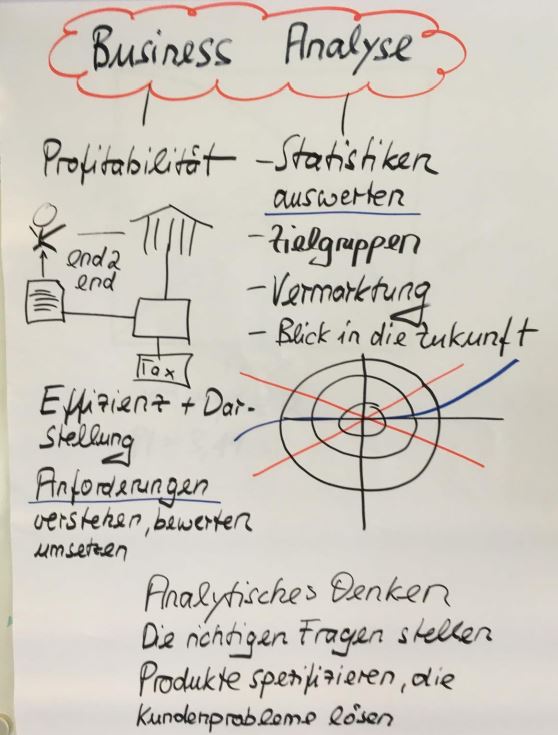 Business Analyse
Profitabilität
end2
end
Tax
Effizienz + Dar-
stellung
Anforderungen
verstehen, bewerten
umsetzen
- Statistiken
auswerten
- Zielgruppen
- Vermarktung
- Blick in die Zukunft
Analytisches Denken
Die richtigen Fragen stellen
Produkte spezifizieren, die
Kundenprobleme lösen